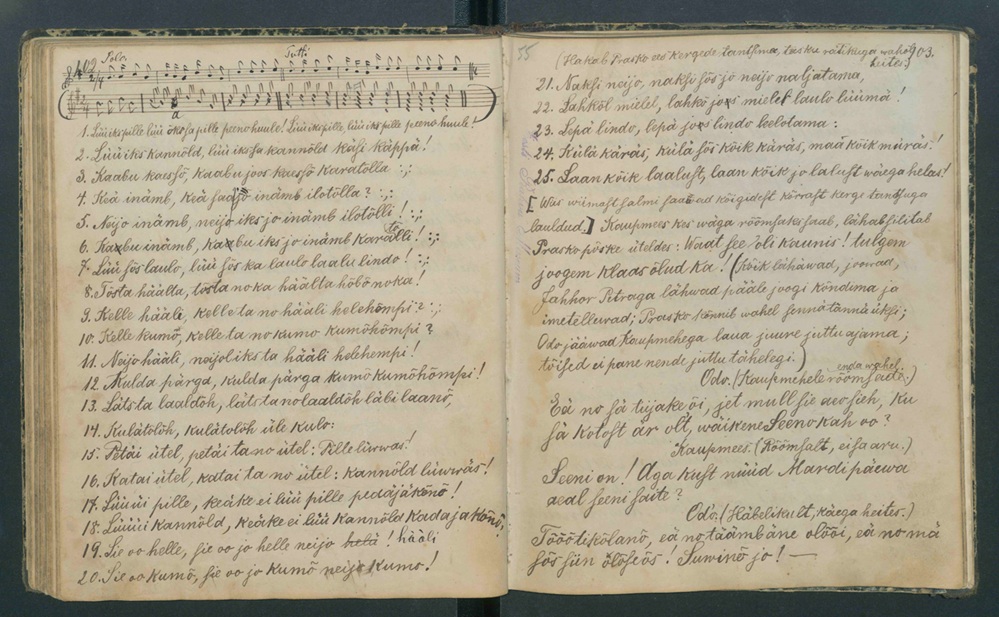 402
Solo.
Tutti
1. Lüü iks pille, lüü iks ja pille peeno huule! Lüü iks pille, lüü iks pille peeno huule!
2. Lüü iks kannõld, lüü iks ja kannõld käsi käppä!
3. Kaabu kaessõ, kaabu joos kaessõ karatõlla :,:
4. Keä inämb, keä jo inämb ilotõlla? :,:
5. Neijo inämb, neijo iks jo inämb ilotõlli! :,:
6. Kaabu inämb, kaabu iks jo inämb karatõlli! :,:
7. Lüü sõs laulo, lüü sõs ka laulo laalu lindo! :,:
8. Tõsta häälta, tõsta no ka häälta hõbõnoka!
9. Kelle hääli, kelle ta no hääli helehõmpi? :,:
10. Kelle kumõ, kelle ta no kumo kumõhõmpi?
11. Neijo hääli, neijol iks ta hääli helehempi!
12. Kulda pärgä, kulda pärga kumõ kumõhõmpi!
13. Läts ta laaldõh, läts ta no laaldõh läbi laanõ,
14. Kulätõlõh, kulätõlõh üle kulo:
15. Petäi ütel, petäi ta no ütel: Pille lüvvas!
16. Katai ütel, katai ta no ütel: kannõld lüvväs!
17. Lüüüi pille, keäke ei lüü pille pedäjäkõnõ!
18. Lüüüi kannõld, keäke ei lüü kannõld kadajakõnõ!
19. Sie oo helle, sie oo jo helle neijo hääli
20. Sie oo kumõ, sie oo jo kumõ neijo kumo!
55
403.
(Hakab Prasko ees kergede tantsma, tasku rätikuga weho
heites.)
21. Naksi neijo, naksi sõs jo neijo naljätama,
22. Lahkõl mielel, lahkõ joos mielel laulo lüümä!
23. Lepä lindo, lepä joos lindo leelotama:
24. Külä käräs, külä sõs kõik käräs, maa kõik müräs!
25. Laan kõik laalust, laan kõik jo lalust wäega helas!
[Was wiimast salmi saab ed kõigidest kõrrast kerge tantsuga
lauldud.] Kaupmees kes wäga rõõmsaks saab, lähab silitab
Prasko põske üteldes: Waat see oli kaunis! tulgem
joogem klaas õlud ka! (Kõik lähäwad, joowad,
Jahhor Petraga lähwad pääle joogi kõndema ja
imetellewad; Prasko kõnnib wahel senna tänna üksi;
Odo jääwad Kaupmehega laua juure juttu ajama;
tõised ei pane nende juttu tähelegi.)
Odo. (Kaupmehele enda wahel rõõmsaste.)
Eä no sä tijake õi, jet mull sie aeo sieh, ku
sä kotost är olt, wäikene Seeno kah oo?
Kaupmees. (Rõõmsalt, ei sa aru.)
Seeni on! Aga kust nüüd Mardi päewa
aeal seeni saite?
Odo. (Häbelikult, käega heites.)
Töötikõlanõ, eä no täämbäne olõõi, eä no mä
sõs siin õlõseos! Suwinõ jo! —